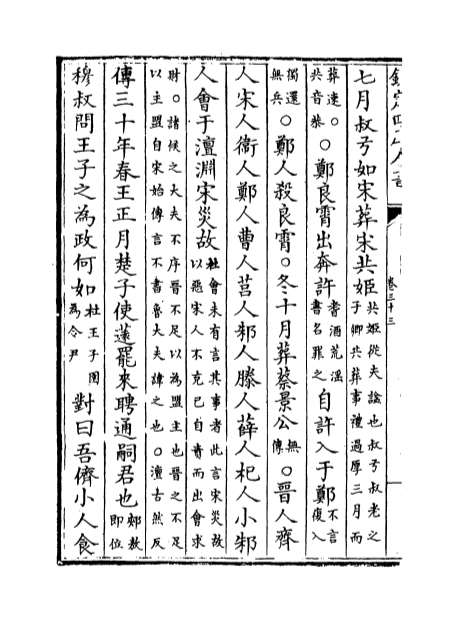 欽定四庫全書
卷三十三
七月叔弓如宋葬宋共姬共姬從夫諡也叔弓叔老之子卿共葬事禮過厚三月而
葬速。共音恭○鄭良霄出奔許耆酒荒淫書名罪之自許入于鄭不言復入
獨還無兵○鄭人殺良霄○冬十月葬蔡景公無傳○晉人齊
人宋人衛人鄭人曹人莒人邾人滕人薛人杞人小邾
人會于澶淵宋災故杜會未有言其事者此言宋災故以惡宋人不克己自責而出會求
財。諸侯之大夫不序晉不足以為盟主也晉之不足以主盟自宋始傳言不書魯大夫諱之也。澶古然反
傳三十年春王正月楚子使薳罷來聘通嗣君也郟敖即位
穆叔問王子之為政何如杜王子圍為令尹對曰吾儕小人食